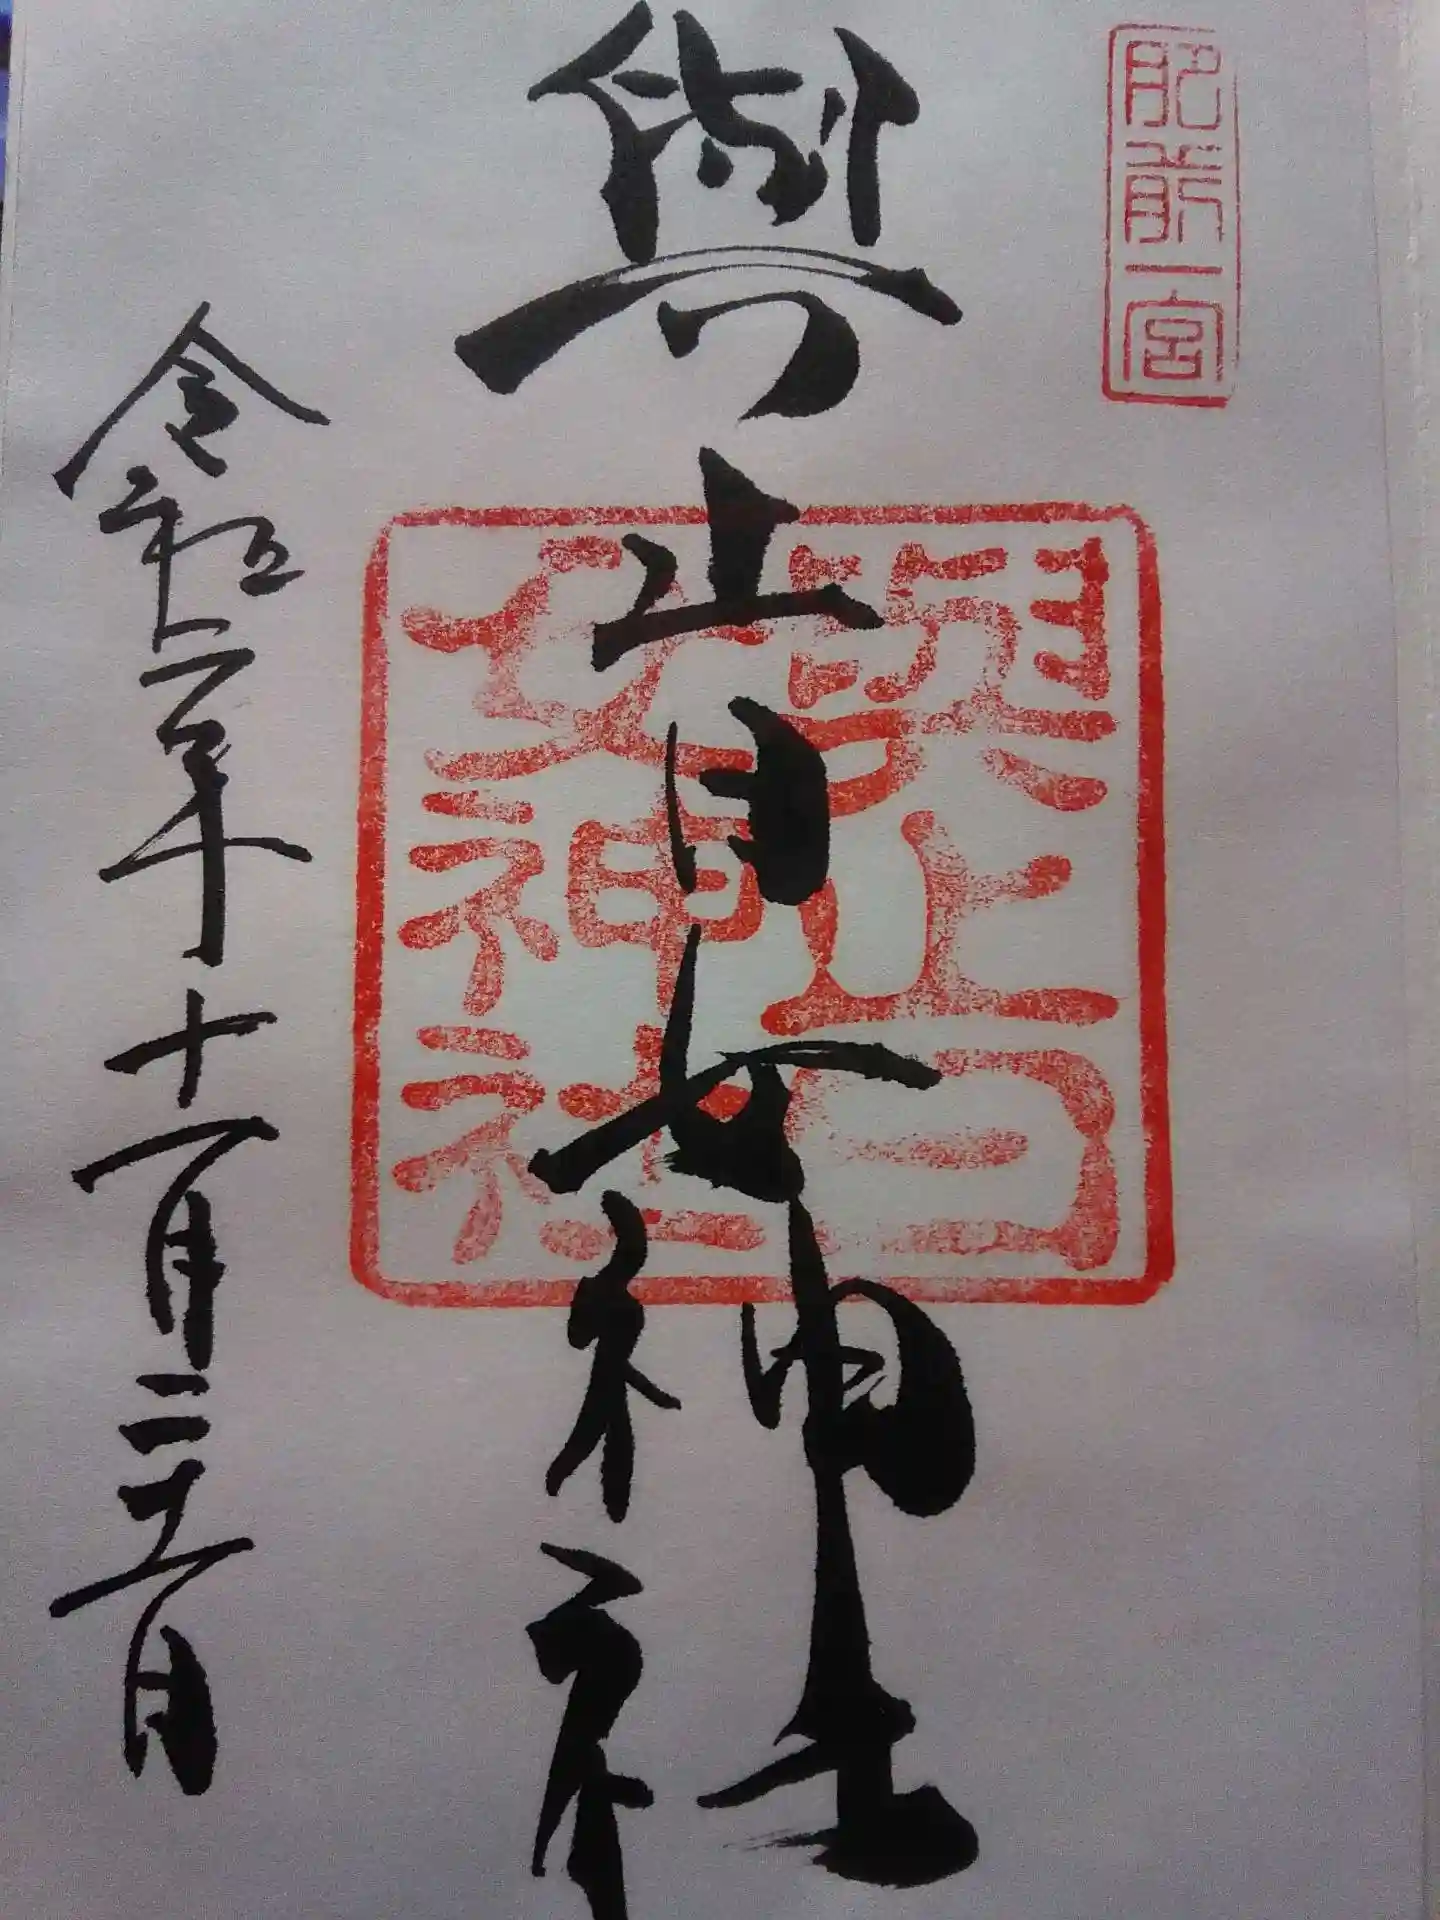 肥前一宮
與止日女神社
與止日
女神社
令和二年十一月二十一日